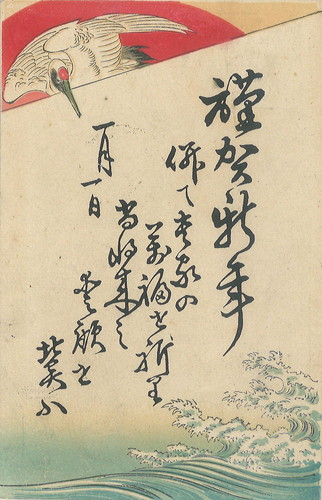 謹賀新年
併て貴家の
萬福を祈り
尚将来之
愛顧を
冀ふ
一月一日